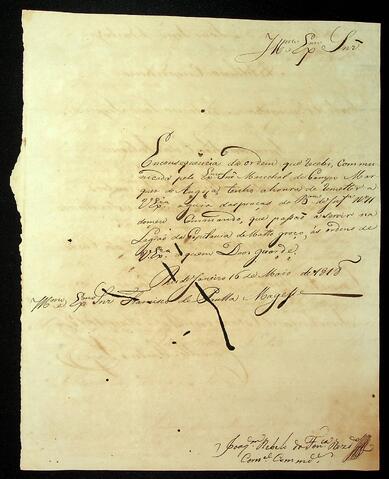 Illmo. e Exmo. Snr.
Emconsequencia da ordem que recebi, Commu
nicada pelo Exmo. Snr. Marechal de Campo Mar
quez de Angeja tenho ahonra de remetter a
V. Exa. a guia das praças do Bam.
do meu Commando, que passão a servir na
Legião da Capitania de Matto groço, ás ordens de
V. Exa. a quem Deos guarde.
Rio de Janeiro 16 de Maio de 1818
Illmo. e Exmo. Snr. Francisco de Paulla Magessi
Joaqm.
Comel. Commde.